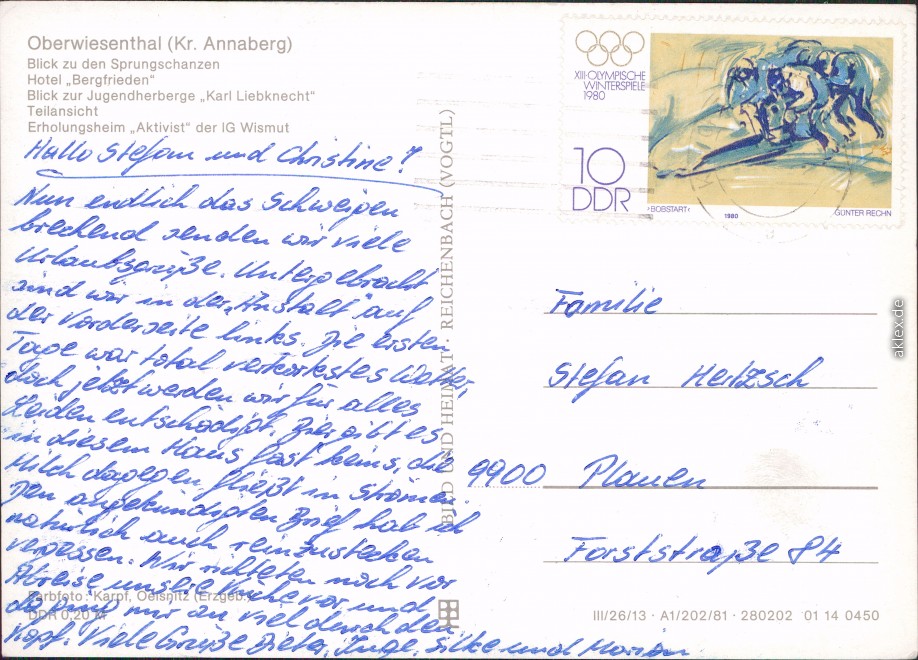 Oberwiesenthal (Kr. Annaberg)
Blick zu den Sprungschanzen
Hotel „Bergfrieden“
Blick zur Jugendherberge „Karl Liebknecht“
Teilansicht
Erholungsheim „Aktivist“ der IG Wismut
Hallo Stefan und Christine!
Nun endlich das Schweigen
brechend senden wir viele
Urlaubsgrüße. Untergebracht
sind wir in der „Anstalt“ auf
der Vorderseite links. Die ersten
Tage war total verkorkstes Wetter,
doch jetzt werden wir für alles
Leiden entschädigt. Bier gibt es
in diesem Haus fast keins, die
Milch dagegen fließt in Strömen.
Den angekündigten Brief hab ich
natürlich auch reinzustecken
vergessen. Wir richteten noch vor
Abreise unsere Küche vor und
da ging mir zu viel durch den
Kopf. Viele Grüße Dieter, Inge, Silke und Marion
Farbfoto: Karpf, Oelsnitz (Erzgeb.)
DDR 0,20 M
BILD UND HEIMAT · REICHENBACH (VOGTL)
XIII·OLYMPISCHE
WINTERSPIELE
1980
10
DDR
›BOBSTART‹
1980
GÜNTER RECHN
Familie
Stefan Hertzsch
9900 Plauen
Forststraße 84
III/26/13 · A1/202/81 · 280202 01 14 0450
aklex.de